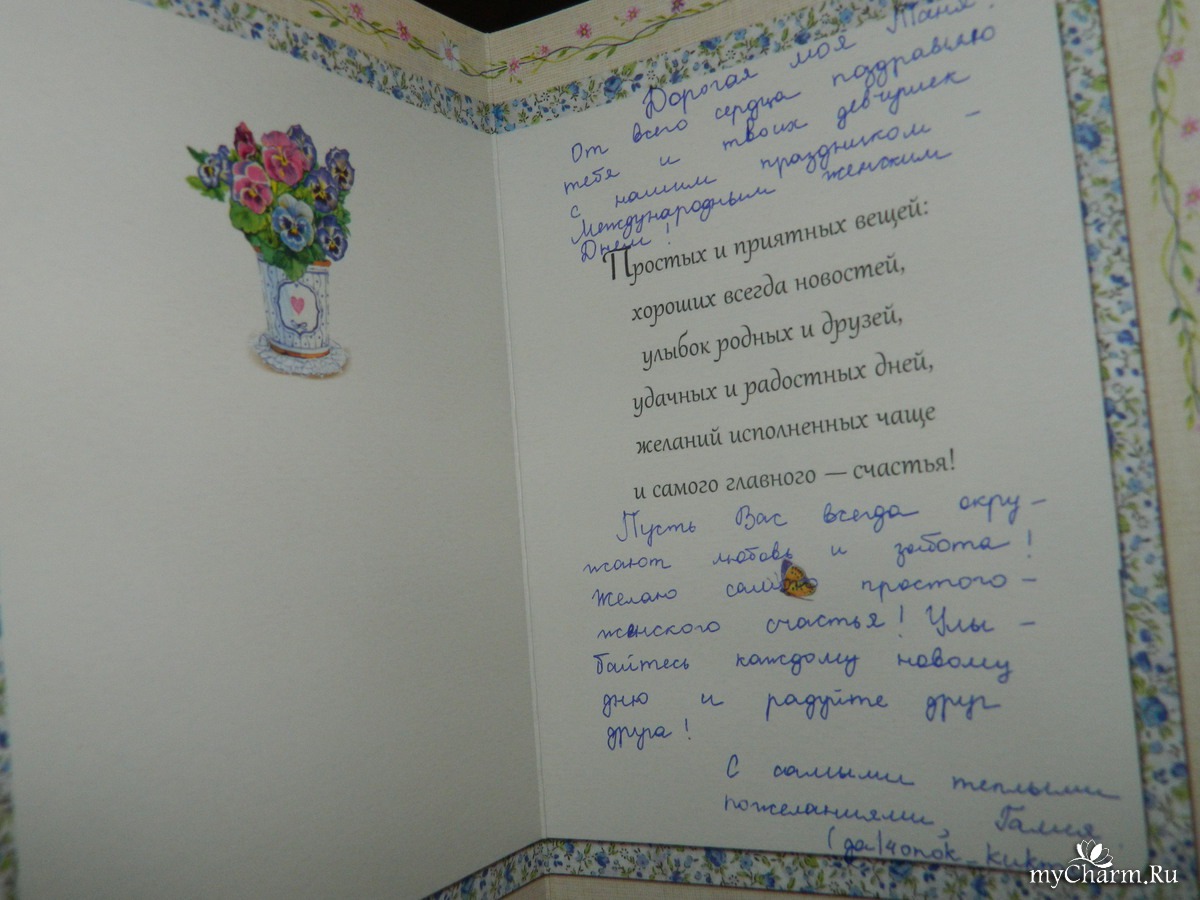 Дорогая моя Таня!
От всего сердца поздравляю
тебя и твоих девчушек
с нашим праздником –
Международным женским
Днем!
Простых и приятных вещей:
хороших всегда новостей,
улыбок родных и друзей,
удачных и радостных дней,
желаний исполненных чаще
и самого главного — счастья!
Пусть Вас всегда окру–
жают любовь и забота!
Желаю самого простого–
женского счастья! Улы–
байтесь каждому новому
дню и радуйте друг
друга!
С самыми теплыми
пожеланиями, Галия
myCharm.Ru